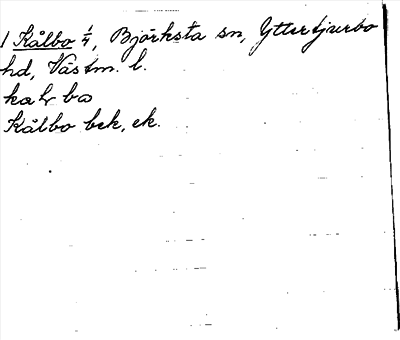 1 Kålbo 1/4, Björksta sn, Yttertjurbo
hd, Västm. l.
Kålbo bek, ek.